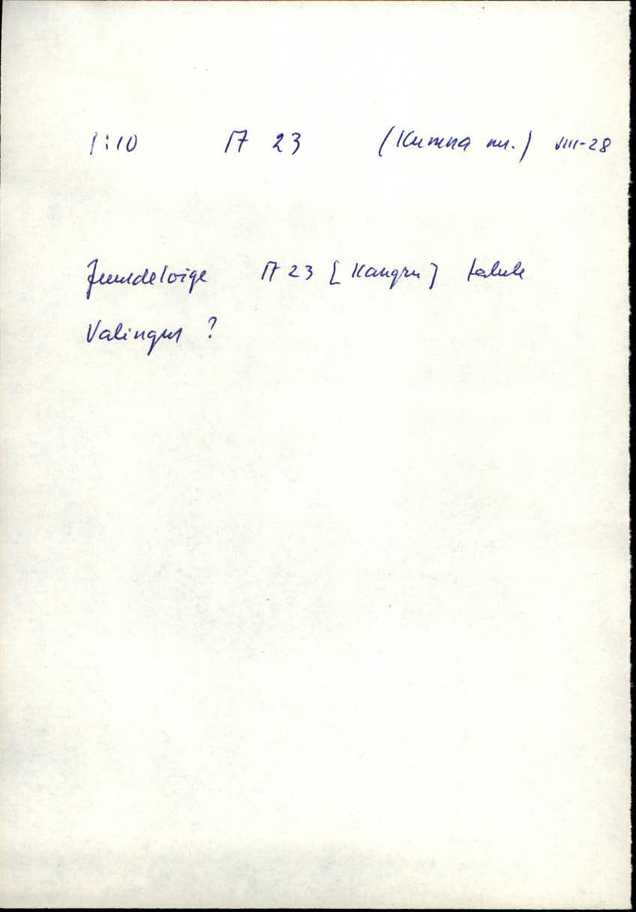 1:10 A 23 (Kumna mr.) VIII-28
A 23 [Kangru] talule
Valingus ?